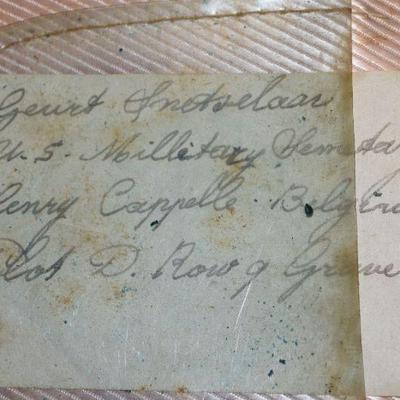 Geurt Snotselaar
U.S. Millitary Semeta
Henry Cappelle Belgiu
Plot D. Row 9 Grave